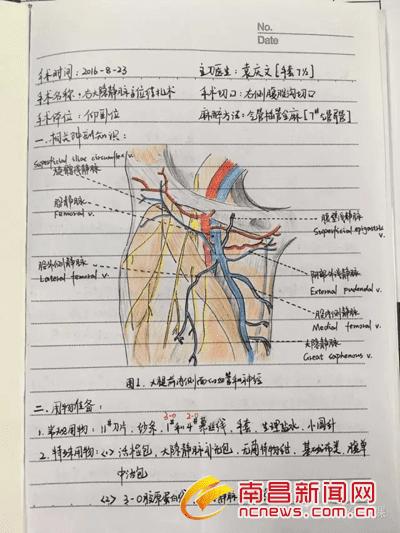 No.
Date
手术时间：2016-8-23 主刀医生：袁庆文［手套7½］
手术名称：右大隐静脉高位结扎术 手术切口：右侧腹股沟切口
手术体位：仰卧位 麻醉方法：全管插管全麻［7#
一.相关解剖知识：
Superficial iliac circumflex v.
旋髂浅静脉
股静脉
Femoral v.
股外侧静脉
Lateral femoral v.
腹壁浅静脉
Superficial epigastric v.
阴部外浅静脉
External pudendal v.
股内侧静脉
Medial femoral v.
大隐静脉
Great saphenous v.
图1.大腿前内侧面的血管和神经
二.用物准备：
3-0 2-0
1.常规用物：11#刀片、纱条、1#和4#慕丝线、手套、生理盐水、小圆针
2.特殊用物：<1>
中治包
<2> 3-0胶原蛋白线
南昌新闻网
ncnews.com.cn